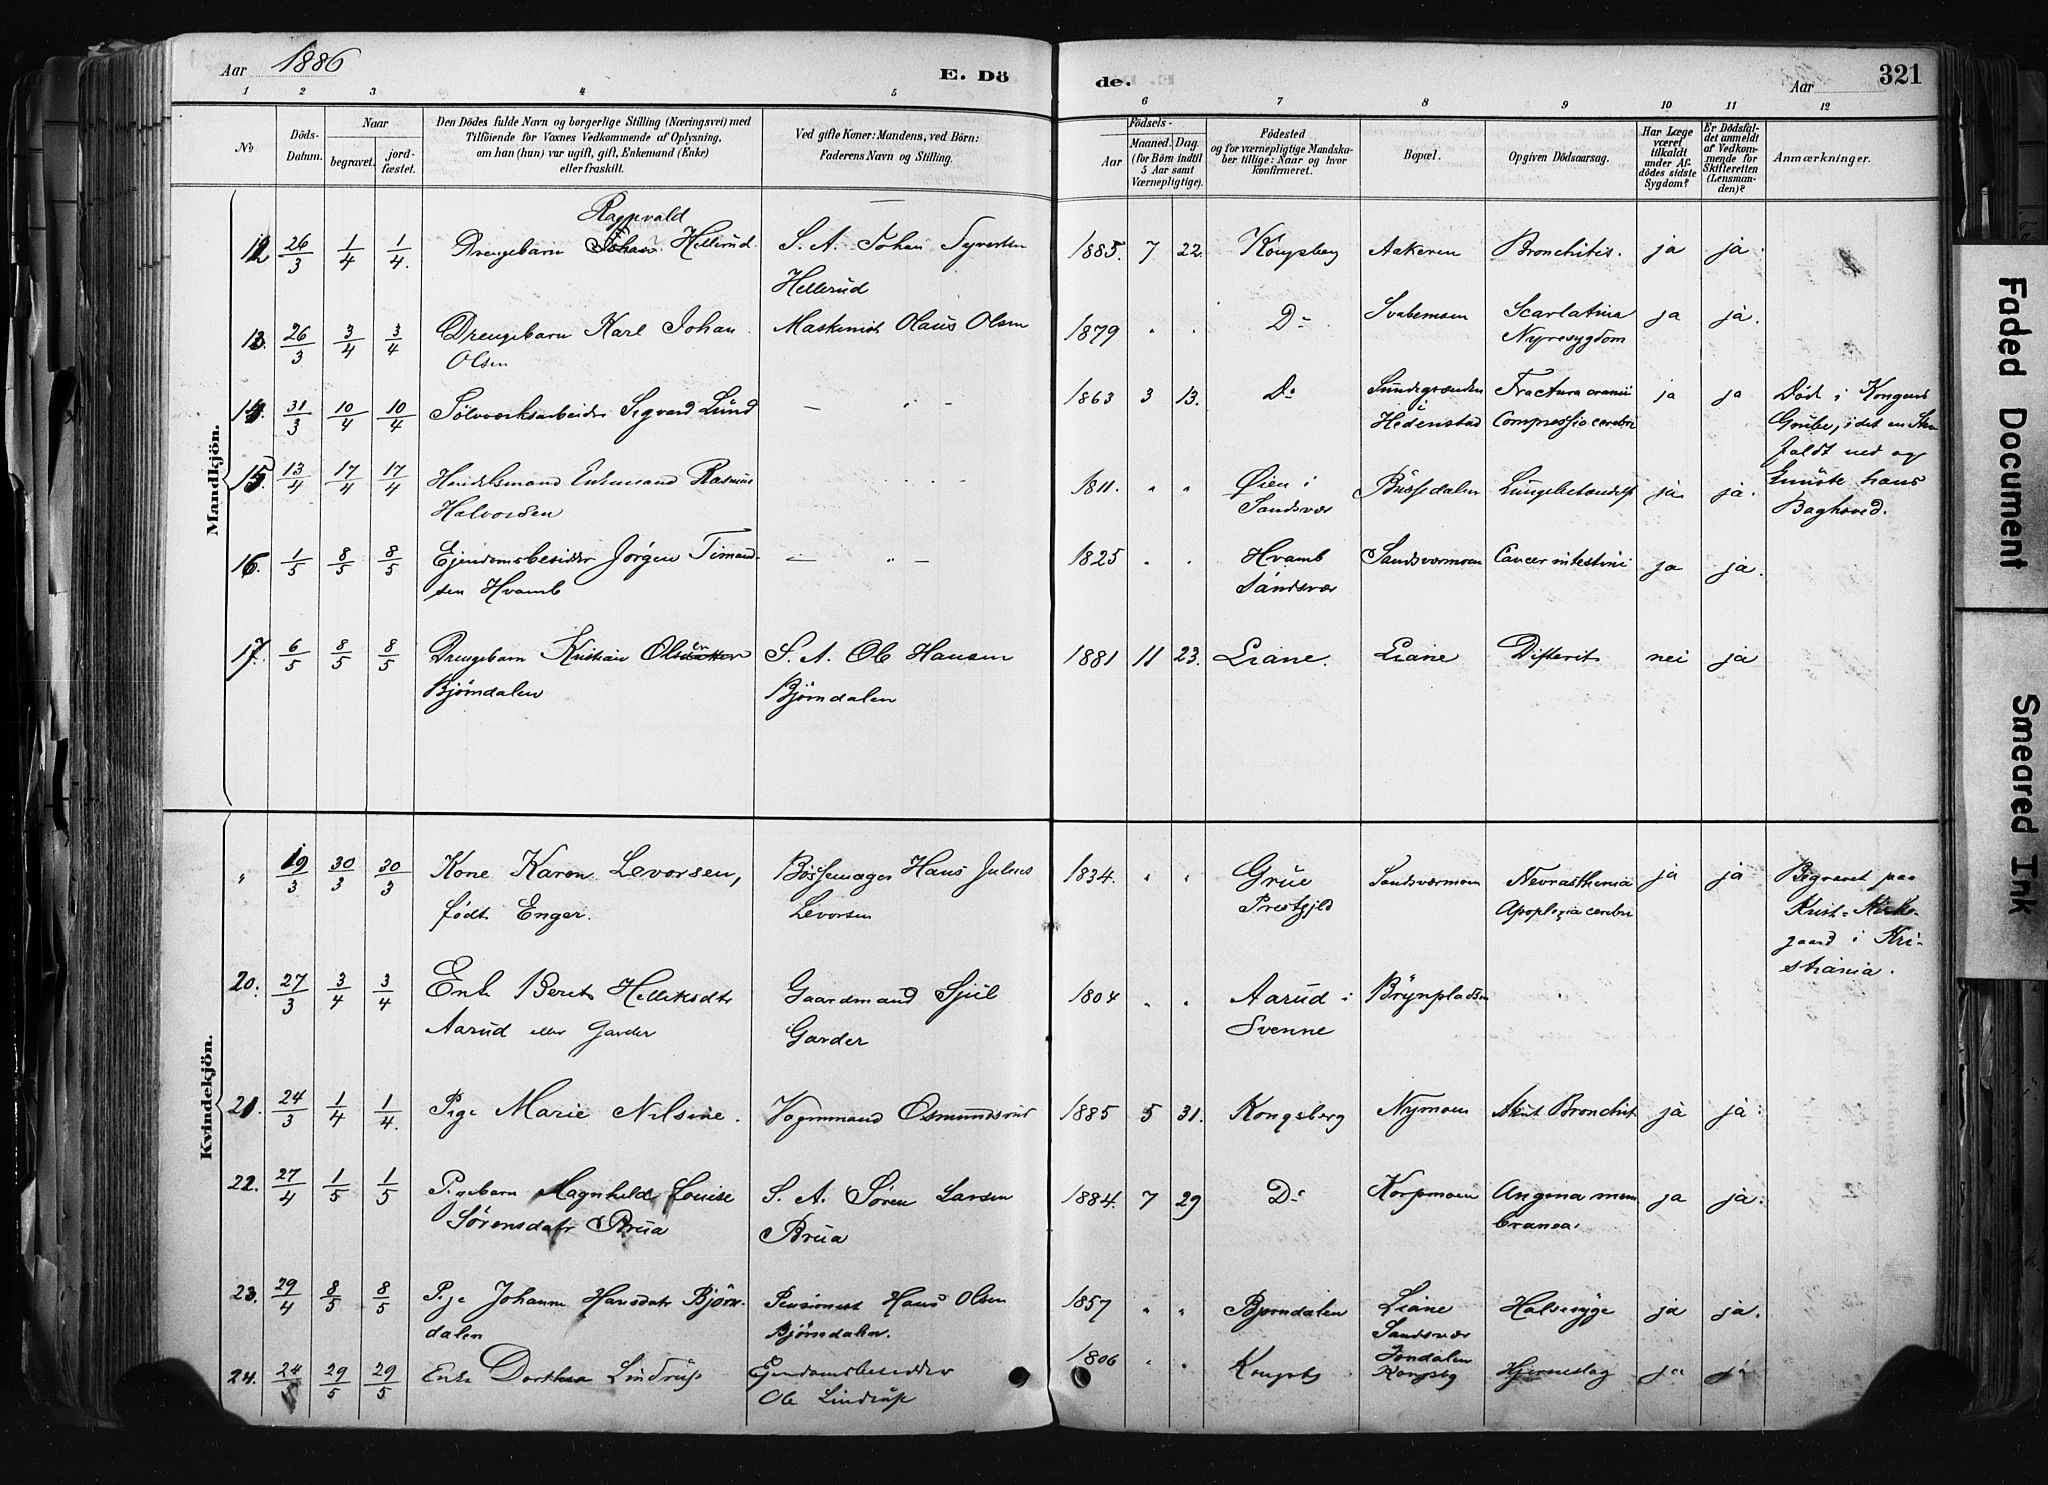 Aar 1886
E. Dö
de.
Aar
321
1 2 3 4 5 6 7 8 9 10 11 12
No
Döds-Datum.
Naar
begravet.
jord-fæstet.
Den Dödes fulde Navn og borgerlige Stilling (Næringsvei) med
Tilföiende for Voxnes Vedkommende af Oplysning,
om han (hun) var ugift, gift, Enkemand (Enke)
eller fraskilt.
Ved gifte Koner: Mandens, ved Börn:
Faderens Navn og Stilling.
Födsels-
Aar
Maaned. (for Börn indtil 5 Aar samt Værnepligtige).
Dag.
Födested
og for værnepligtige Mandska-
ber tillige: Naar og hvor
konfirmeret.
Bopæl.
Opgiven Dödsaarsag.
Har Læge
været
tilkaldt
under Af-
dödes sidste
Sygdom?
Er Dödsfal-
det anmeldt
af Vedkom-
mende for
Skifteretten
(Lensman-
den)?
Anmærkninger.
Mandkjön.
Ragnvald
12. 26/3 1/4 1/4. Drengebarn Johan Hellerud. S. A. Johan Syvertsen 1885. 7 22. Kongsberg Aakeren Bronchitis. ja ja.
Hellerud
13. 26/3 3/4 3/4 Drengebarn Karl Johan Maskinist Olaus Olsen 1879 " " Do Svabemoen Scarlatina ja ja.
Olsen Nyresygdom
14. 31/3 10/4 10/4 Sølvverksarbeider Sigvard Lund — " — 1863 3 13. Do Fractura cranii ja ja Død i Kongens
i Hedenstad Compressio cerebri Grube, idet en Sten
faldt ned og
15 13/4 17/4 17/4 Enkemand Rasmus 1811. " " Øien i Bussedalen Lungebetændelse ja ja. knuste hans
Halvorsen Sandsvær Baghoved.
16. 1/5 8/5 8/5 Ejendomsbesidder Jørgen Timand- — " — 1825 " " Hvamb Sandsværmoen Cancer intestini ja ja.
sen Hvamb Sandsvær
17. 6/5 8/5 8/5 Drengebarn Kristian Olsen S. A. Ole Hansen 1881 11 23. Liane. Liane Difterit nei ja
Bjørndalen Bjørndalen
Kvindekjön.
" 19/3 30/3 30/3 Kone Karen Levorsen, Bøssemager Hans Julius 1834. " " Grue Sandsværmoen Nevrasthenia ja ja Begravet paa
født Enger. Levorsen Prestgjld Apoplexia cerebri Krist. Kirke-
gaard i Kri-
stiania.
20. 27/3 3/4 3/4 Enke Berit Helliksdtr Gaardmand Sjul 1804 " " Aarud i Brynpladsen "
Aarud eller Garder Garder Svenne
21. 24/3 1/4 1/4. Pige Marie Nilsine. Vognmand Osmundsrud 1885 5 31. Kongsberg Nymoen Akut Bronchit ja ja
22. 27/4 1/5 1/5 Pigebarn Magnhild Louise S. A. Søren Larsen 1884. 7 29 Do Korpmoen Angina mem ja ja.
Sørensdatr Brua Brua branea.
23. 29/4 8/5 8/5 Pige Johanne Hansdatr Bjørn- Pensionist Hans Olsen 1857 " " Bjørndalen Liane Halsesyge ja ja.
dalen Bjørndalen. Sandsvær
24. 24/5 29/5 29/5 Enke Dorthea Lindrup Ejendomsbesidder 1806 " " Kongsbg Jondalen Hjerneslag ja ja
Ole Lindrup Kongsbg
Faded Document
Smeared Ink